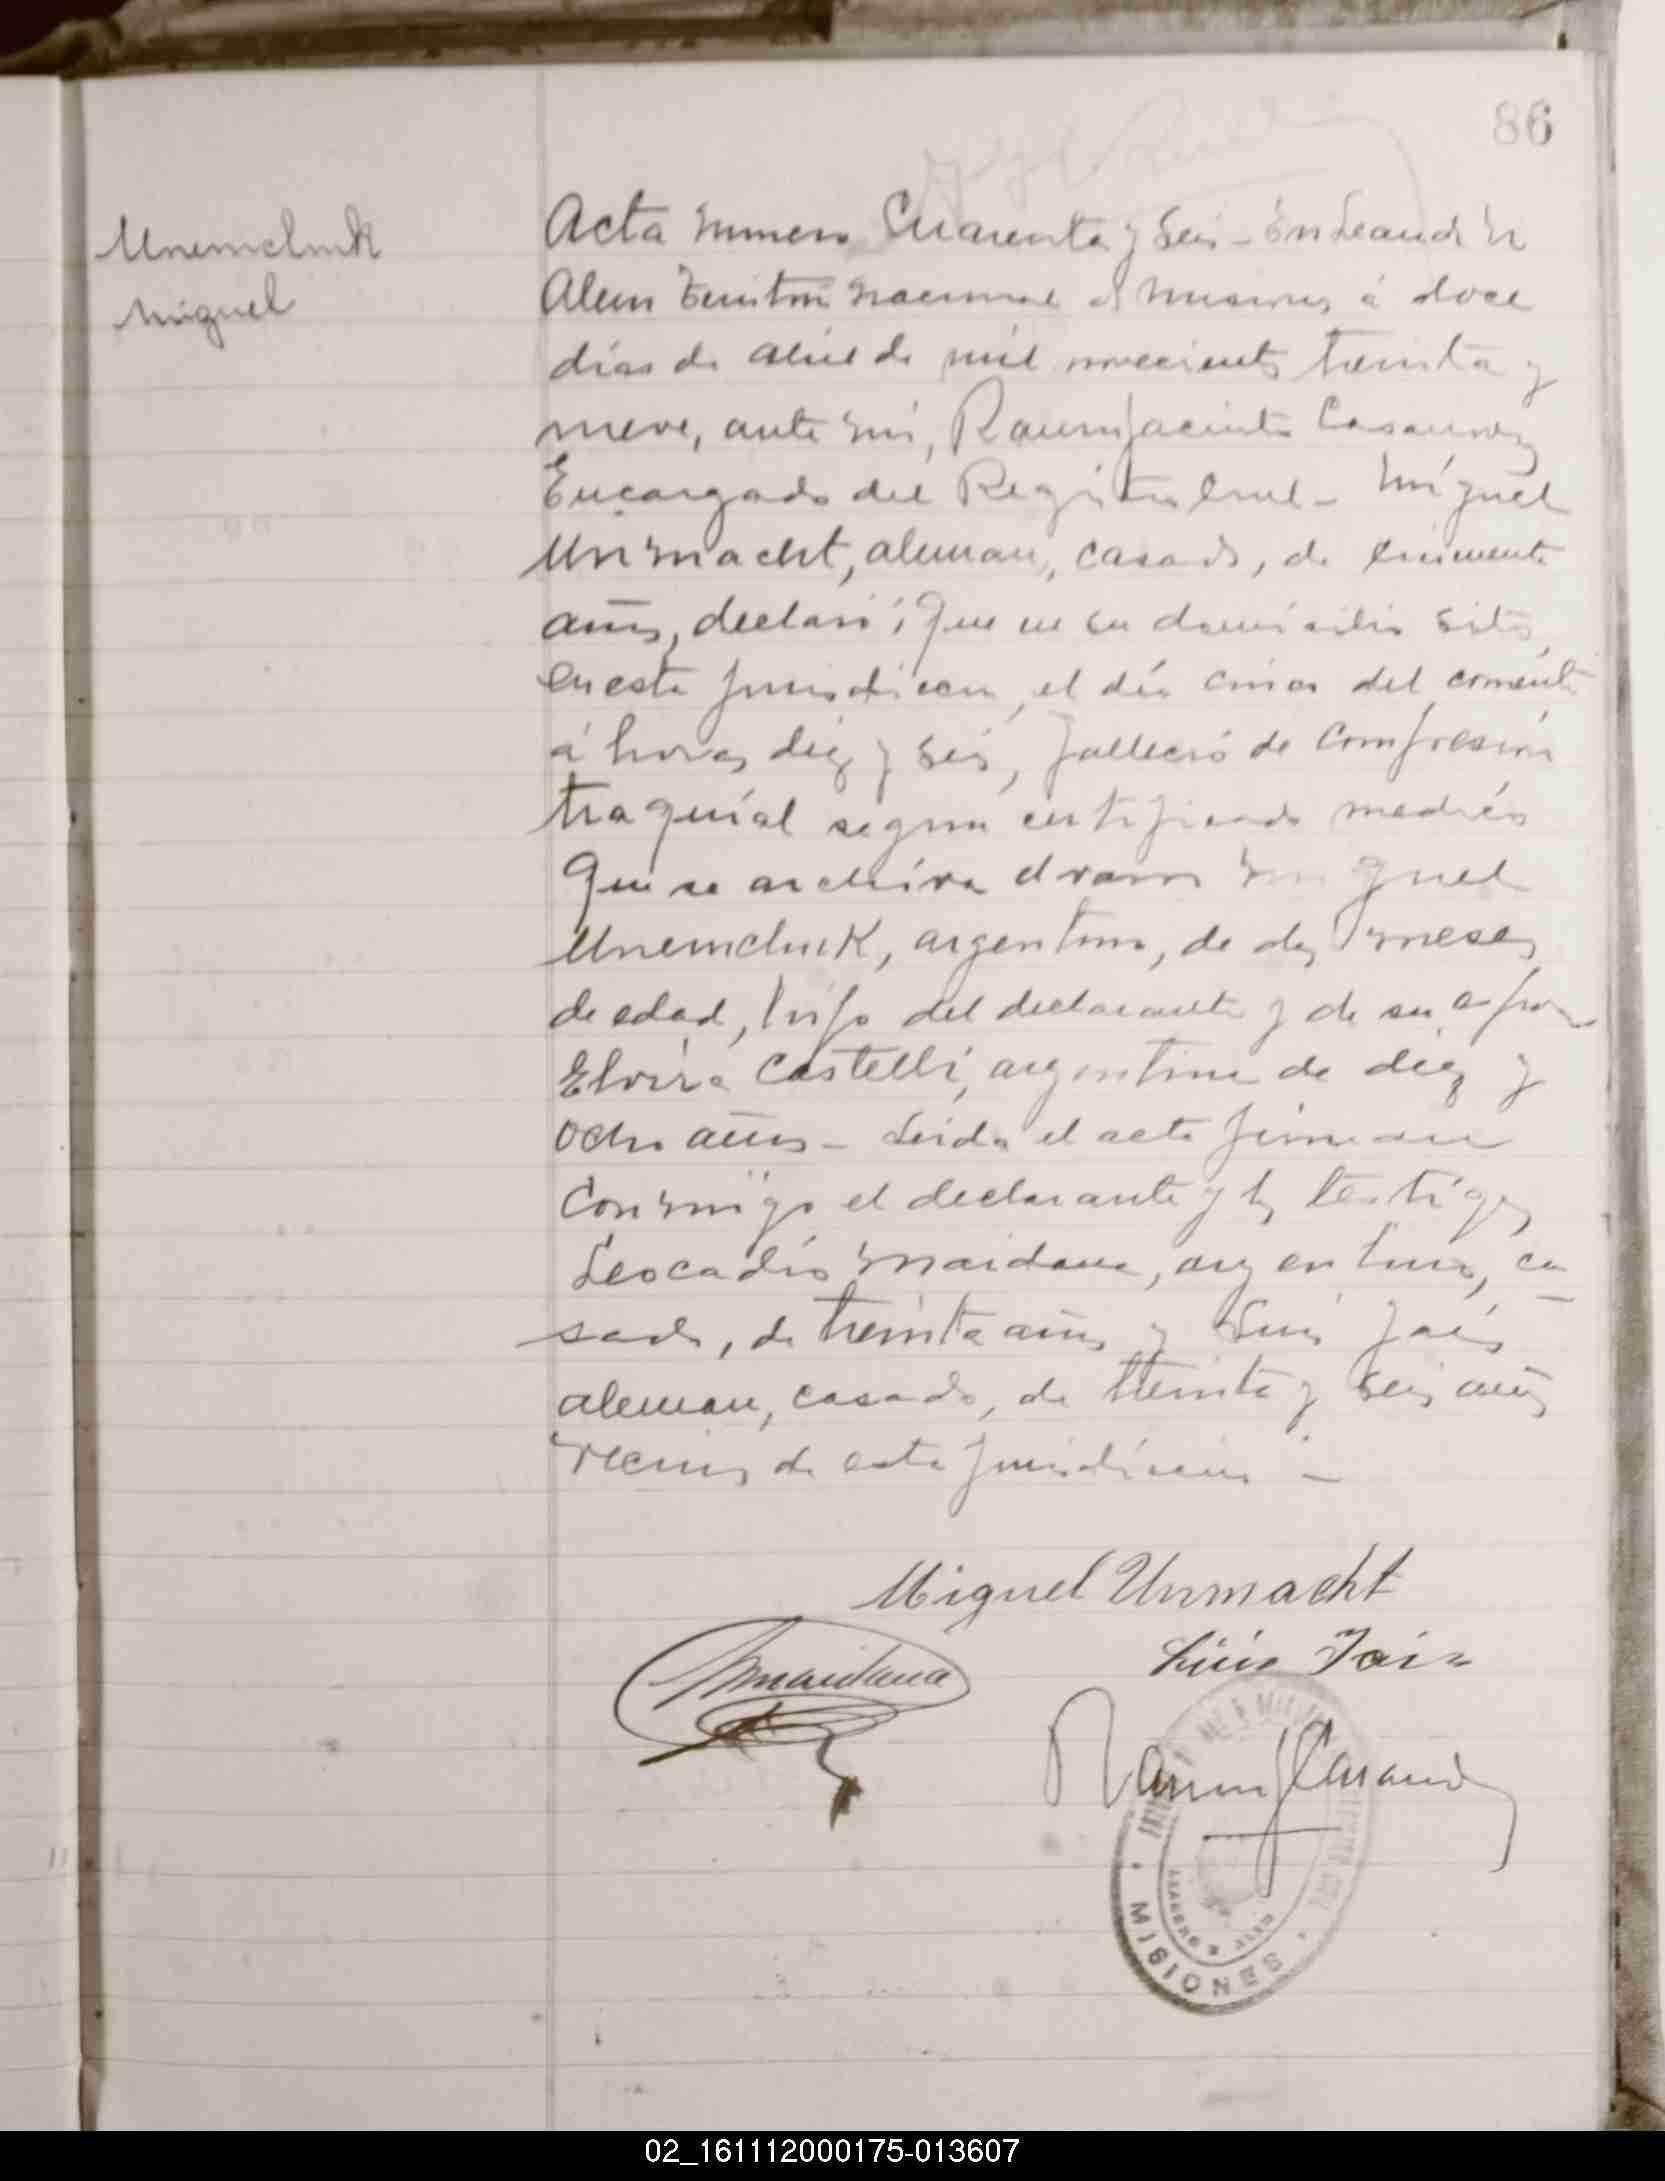 86
Unemchuk
Miguel
Acta numero Cuarenta y Seis - En Leandro N
Alem Territorio nacional de Misiones á doce
días de abril de mil novecientos treinta y
nueve, ante mi, Ramon Jacinto Casanova
Encargado del Registro Civil - Miguel
Unmacht, aleman, casado, de cincuenta
años, declaró: Que en su domicilio sito
en esta jurisdiccion, el día cinco del corriente
á horas diez y seis, falleció de Compresión
traquial segun certificado medico
que se archiva el varon Miguel
Unemchuk, argentino, de dos meses
de edad, hijo del declarante y de su esposa
Elvira Castelli, argentina de diez y
ocho años - Leida el acta firman
Conmigo el declarante y los testigos
Leocadio Maidana, argentino, ca
sado, de treinta años y Luis
aleman, casado, de treinta y seis años
vecinos de esta jurisdiccion -
Miguel Unmacht
Maidana
Luis
Ramon J Casanova
MISIONES
02_161112000175-013607